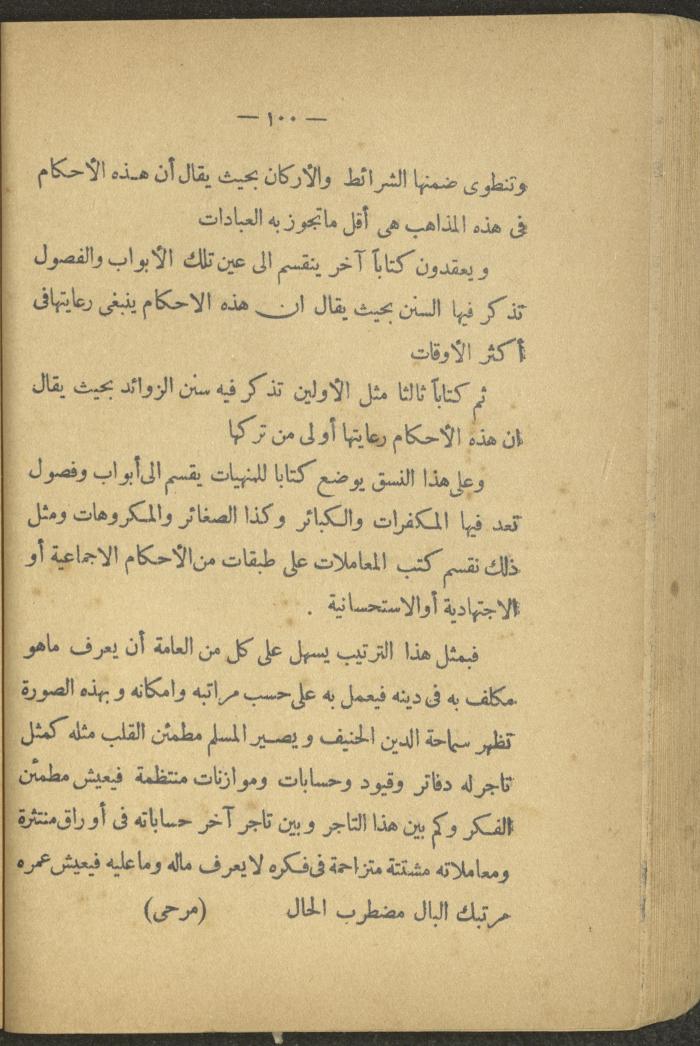 — ١٠٠ —
وتنطوى ضمنها الشرائط والأركان بحيث يقال أن هـذه الأحكام
فى هذه المذاهب هى أقل ماتجوز به العبادات
ويعقدون كتاباً آخر ينقسم الى عين تلك الأبواب والفصول
تذكر فيها السنن بحيث يقال ان هذه الاحكام ينبغى رعايتهافى
أكثر الأوقات
ثم كتاباً ثالثا مثل الأولين تذكر فيه سنن الزوائد بحيث يقال
ان هذه الأحكام رعايتها أولى من تركها
وعلى هذا النسق يوضع كتابا للمنهيات يقسم الى أبواب وفصول
تعد فيها المكفرات والكبائر وكذا الصغائر والمكروهات ومثل
ذلك نقسم كتب المعاملات على طبقات من الأحكام الاجماعية أو
الاجتهادية أوالاستحسانية .
فبمثل هذا الترتيب يسهل على كل من العامة أن يعرف ماهو
مكلف به فى دينه فيعمل به على حسب مراتبه وامكانه وبهذه الصورة
تظهر سماحة الدين الحنيف ويصـير المسلم مطمئن القلب مثله كمثل
تاجر له دفاتر وقيود وحسابات وموازنات منتظمة فيعيش مطمئن
الفكر وكم بين هذا التاجر وبين تاجر آخر حساباته فى أوراق منتثرة
ومعاملاته مشتتة متزاحمة فى فكره لا يعرف ماله وماعليه فيعيش عمره
مرتبك البال مضطرب الحال (مرحى)